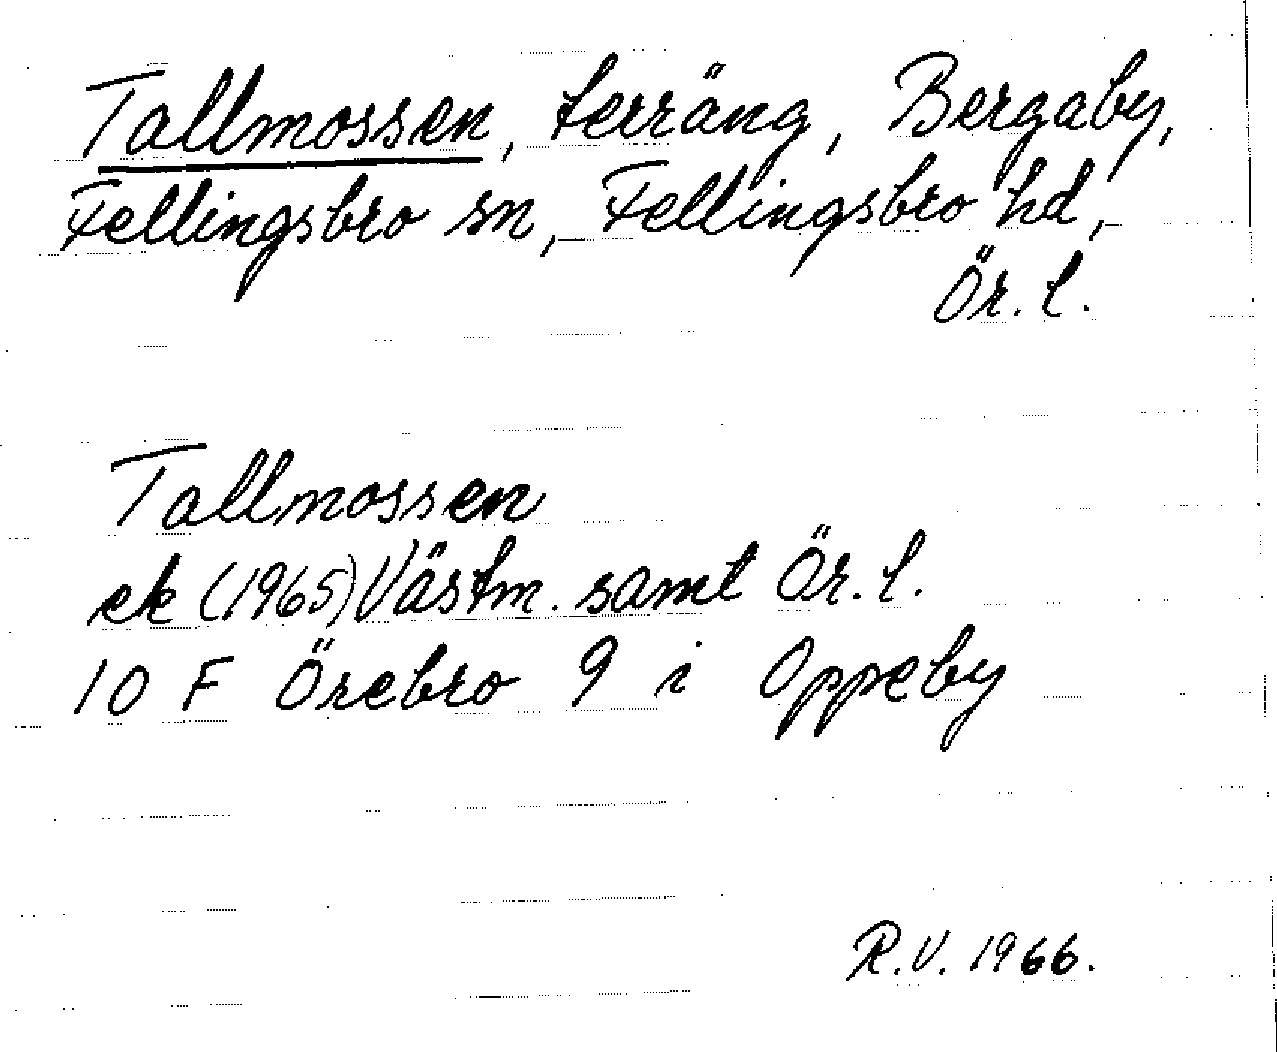 Tallmossen, terräng, Bergaby,
Fellingsbro sn, Fellingsbro hd,
Ör. l.
Tallmossen
ek (1965) Västm. samt Ör. l.
10 F Örebro 9 i Oppeby
R.V. 1966.